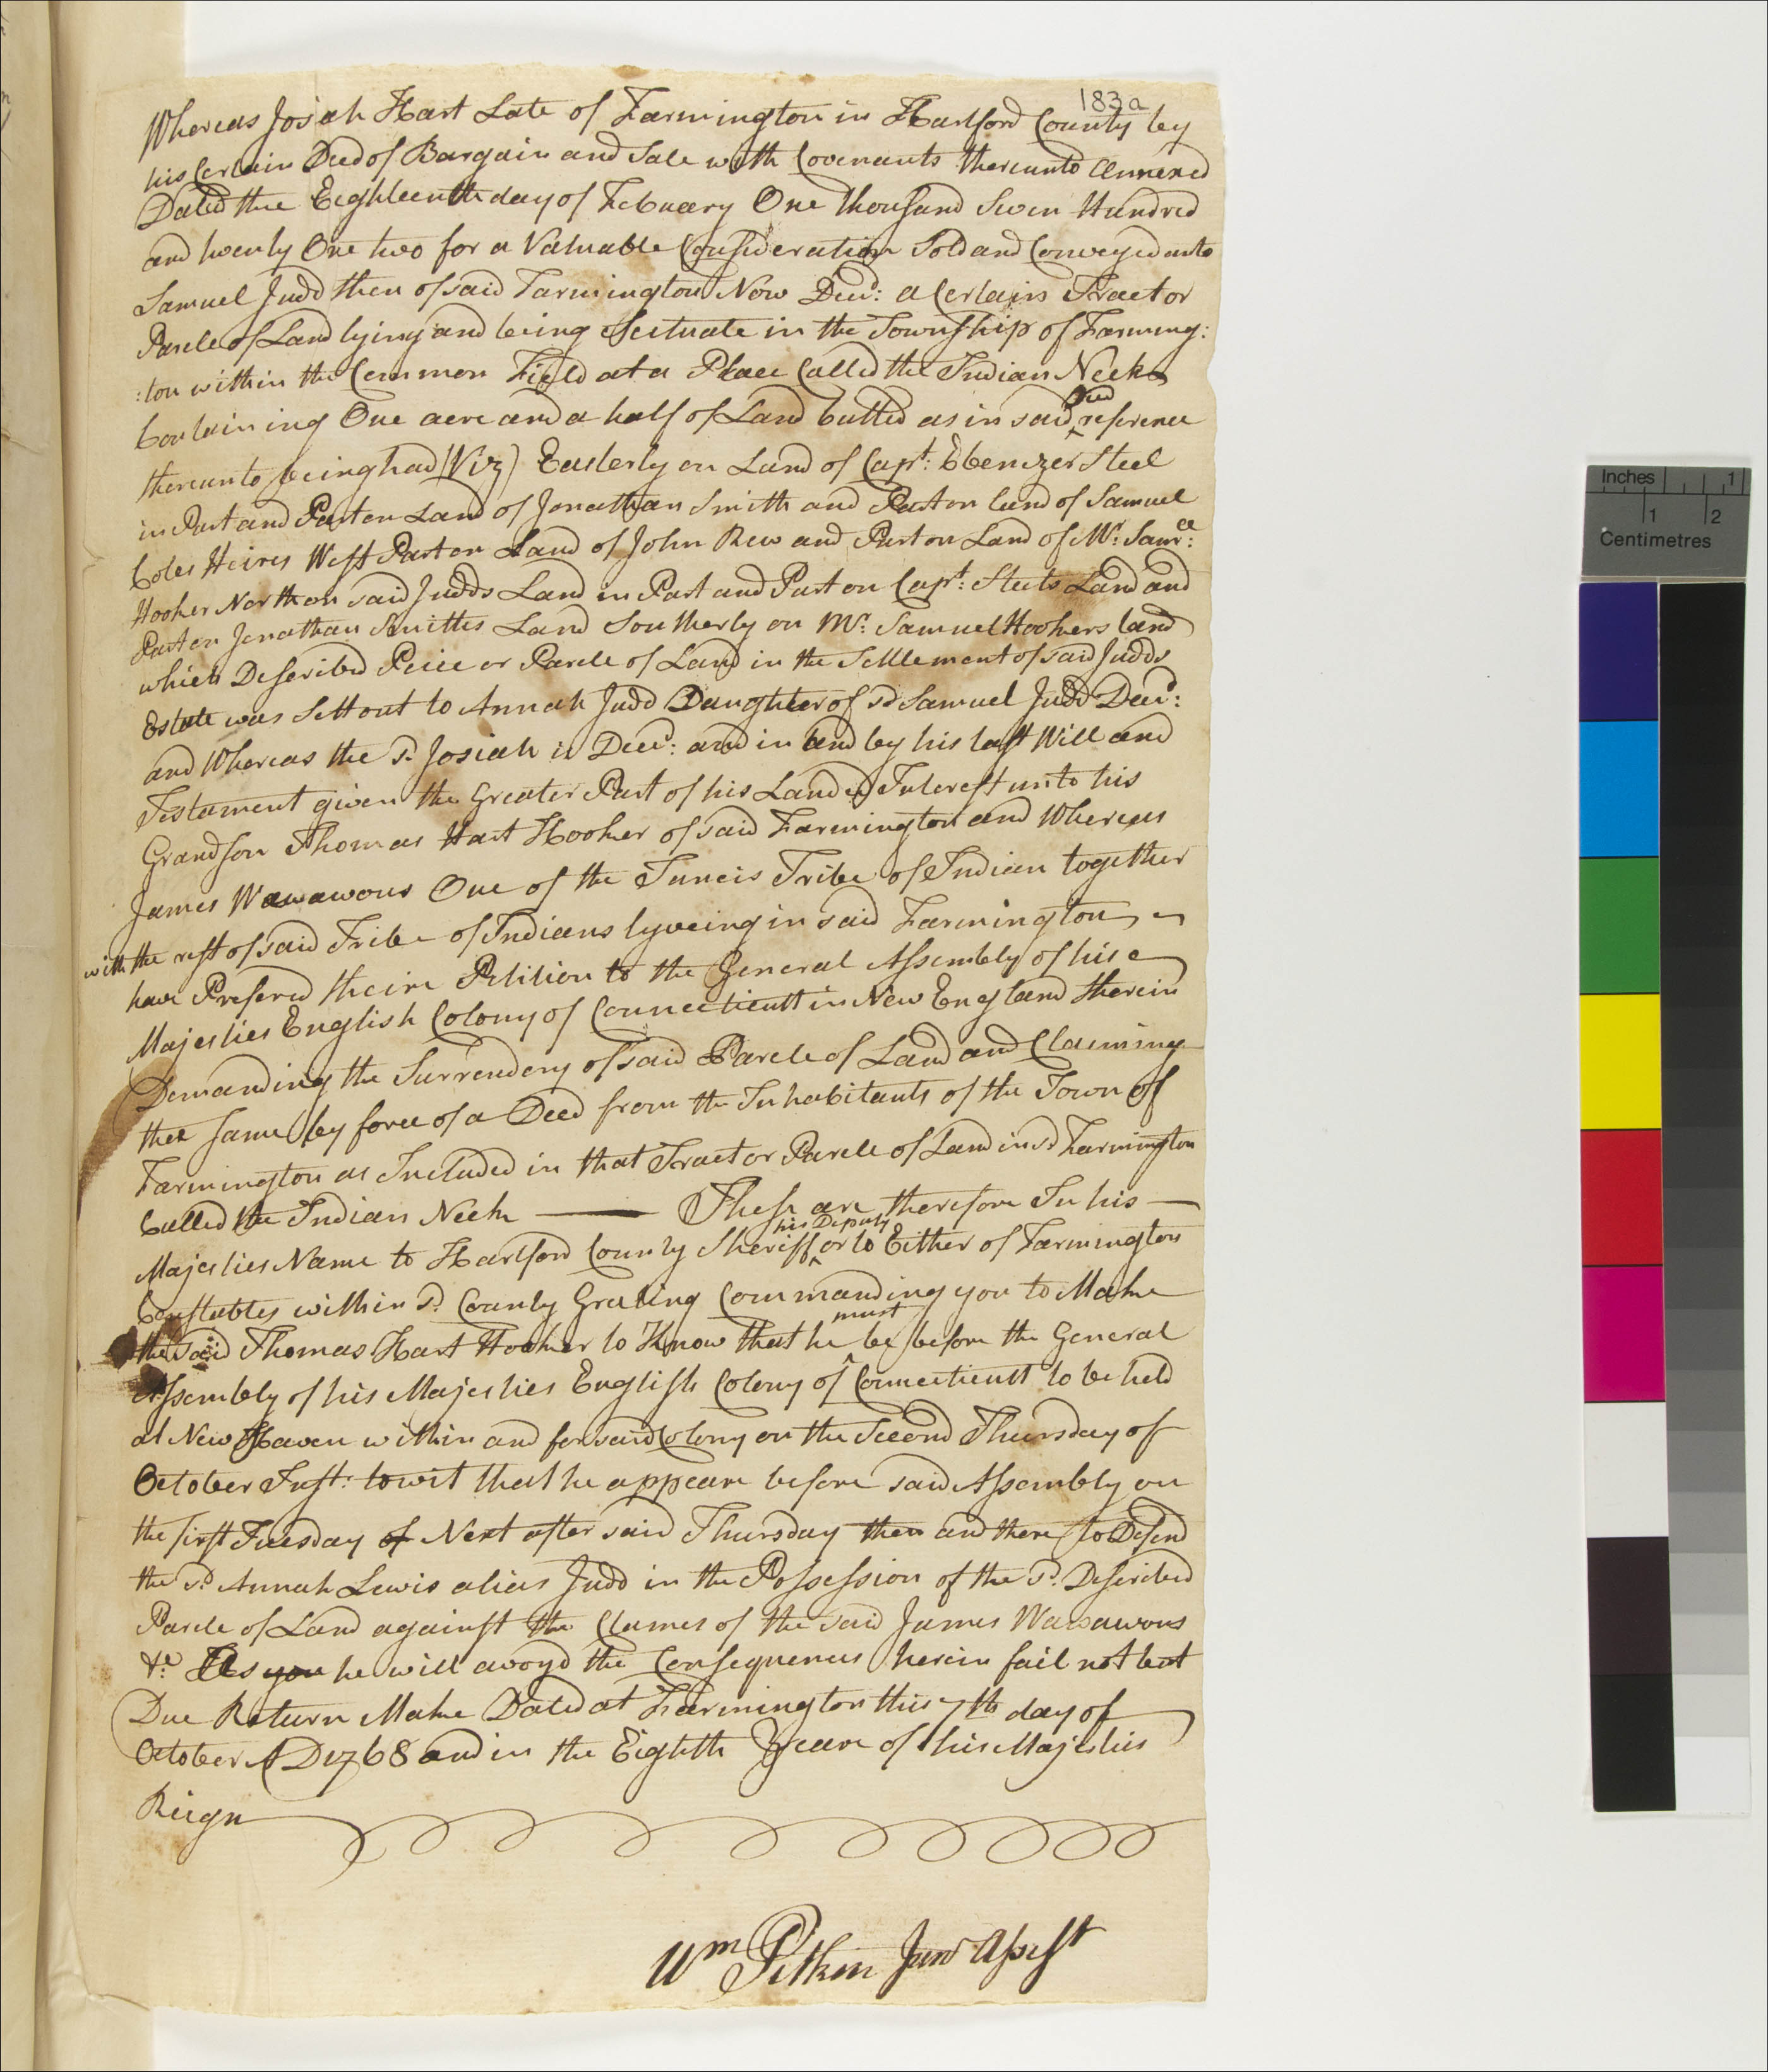 183a
Whereas Josiah Hart Late of Farmington in Hartford County by
his Certain Deed of Bargain and Sale with Covenants thereunto annexed
Dated the Eighteenth day of February One thousand Seven Hundred
and twenty One two for a Valuable Consideration Sold and Conveyed unto
Samuel Judd then of said Farmington Now Decd: a Certain Tract or
Parcle of Land lying and being Scituate in the Township of Farming:
:ton within the Common Field at a Place Called the Indian Neck
Containing One acre and a half of Land butted as in said Deed reference
thereunto being had (Viz) Easterly on Land of Capt: Ebenezer Steel
in Part and Part on Land of Jonathan Smith and Part on land of Samuel
Coles Heires West Part on Land of John Rew and Part on Land of Mr: Samll:
Hooker North on said Judds Land in Part and Part on Capt: Steels Land and
Part on Jonathan Smiths Land Southerly on Mr: Samuel Hookers land
which Described Peice or Parcle of Land in the Settlement of said Judds
Estate was Sett out to Annah Judd Daughter of sd Samuel Judd Decd:
and Whereas the sd. Josiah is Decd: and in and by his last Will and
Testament given the Greater Part of his Landed Interest unto his
Grandson Thomas Hart Hooker of said Farmington and Whereas
James Wawawous One of the Tuncis Tribe of Indian together
with the rest of said Tribe of Indians lyveing in said Farmington
have Prefered theire Petition to the General Assembly of his
Majesties English Colony of Connecticutt in New England therein
Demanding the Surrendery of said Parcle of Land and Claiming
the same by force of a Deed from the Inhabitants of the Town of
Farmington as Included in that Tract or Parcle of Land in sd Farmington
Called the Indian Neck — These are therefore In his —
Majesties Name to Hartford County Sheriff his Deputy or to Either of Farmington
Constables within sd. County Greeting Commanding you to Make
the said Thomas Hart Hooker to Know that he must be before the General
Assembly of his Majesties English Colony of Connecticutt to be held
at New Haven within and for said Colony on the Second Thursday of
October Inst: to wit that he appeare before said Assembly on
the first Tuesday of Next after said Thursday then and there to Defend
the sd. Annah Lewis alias Judd in the Possession of the sd. Described
Parcle of Land against the Clames of the said James Wawawous
&c As you he will avoyd the Consequences herein fail not but
Due Return Make Dated at Farmington this 7th day of
October AD 1768 and in the Eighth Yeare of his Majesties
Reign
Wm Pitkin Junr Assist
Inches 1
1 2
Centimetres